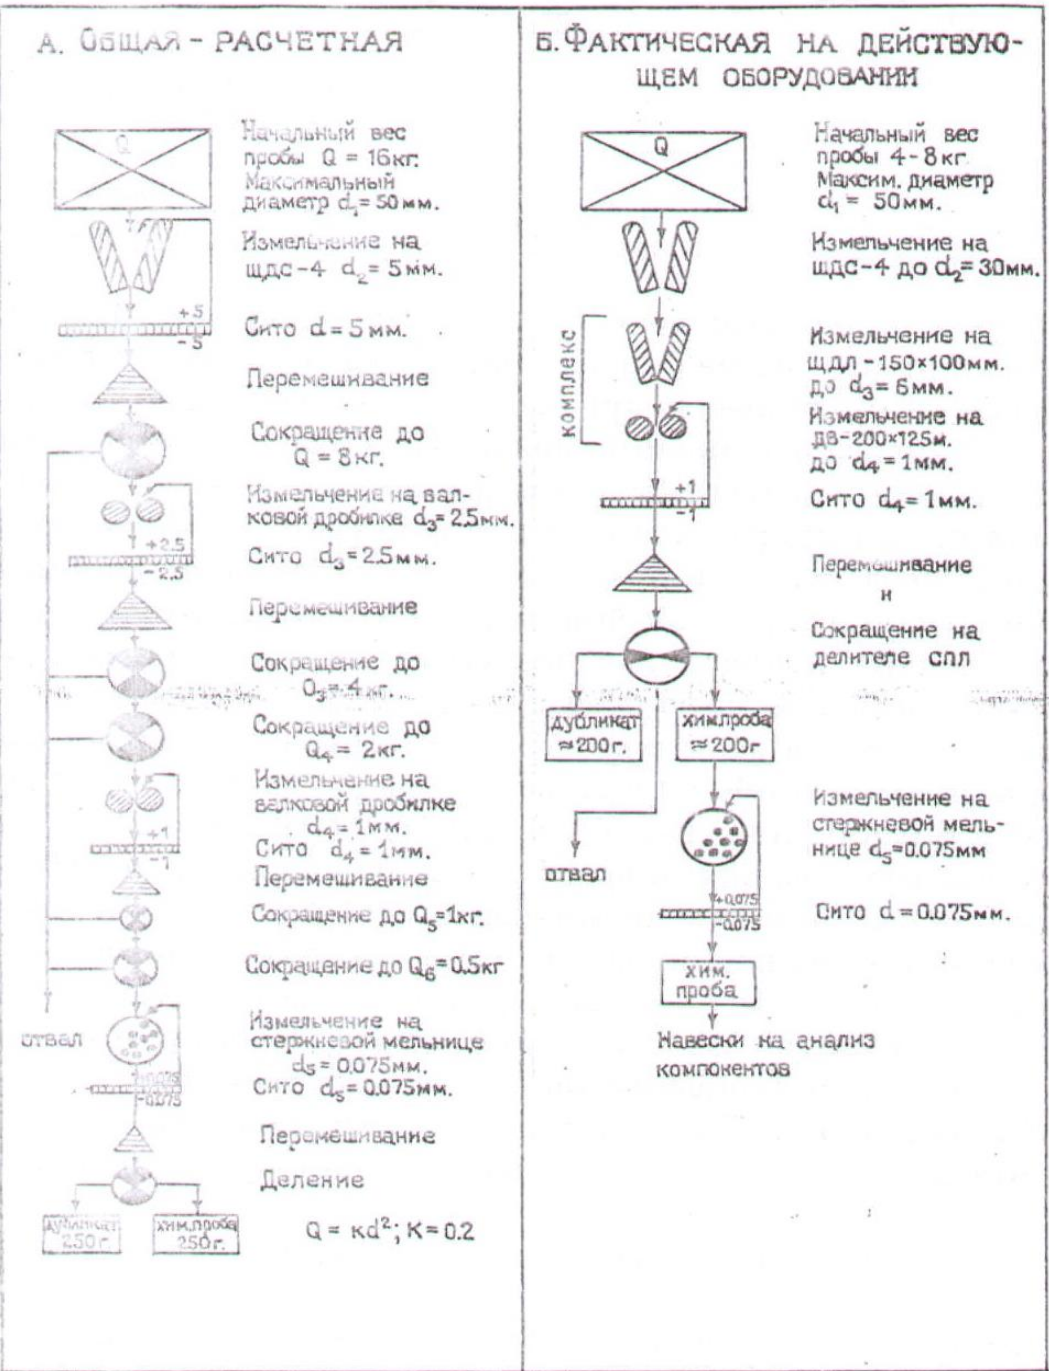 А. ОБЩАЯ - РАСЧЕТНАЯ
Q
Начальный вес
пробы Q = 16кг.
Максимальный
диаметр d₁= 50мм.
Измельчение на
ЩДС-4 d₂= 5мм.
+5
-5
Сито d = 5мм.
Перемешивание
Сокращение до
Q = 8кг.
Измельчение на вал-
ковой дробилке d₃= 2,5мм.
+2,5
-2,5
Сито d₃= 2.5мм.
Перемешивание
Сокращение до
Q₃= 4кг.
Сокращение до
Q₄= 2кг.
Измельчение на
валковой дробилке
d₄= 1мм.
+1
-1
Сито d₄= 1мм.
Перемешивание
Сокращение до Q₅=1кг.
Сокращение до Q₆=0.5кг
отвал
Измельчение на
стержневой мельнице
d₅= 0,075мм.
+0.075
-0.075
Сито d₅= 0.075мм.
Перемешивание
Деление
дубликат
250г.
хим.проба
250г.
Q = кd²; К = 0.2
Б. ФАКТИЧЕСКАЯ НА ДЕЙСТВУЮ-
ЩЕМ ОБОРУДОВАНИИ
Q
Начальный вес
пробы 4-8кг
Максим. диаметр
d₁= 50мм.
Измельчение на
ЩДС-4 до d₂= 30мм.
комплекс
Измельчение на
ЩДЛ-150×100мм.
до d₃= 6мм.
Измельчение на
ДВ-200×125м.
до d₄= 1мм.
+1
-1
Сито d₄= 1мм.
Перемешивание
и
Сокращение на
делителе СПЛ
дубликат
≈200г.
хим.проба
≈200г
отвал
Измельчение на
стержневой мель-
нице d₅=0.075мм
+0,075
-0,075
Сито d = 0.075мм.
хим.
проба
Навески на анализ
компонентов